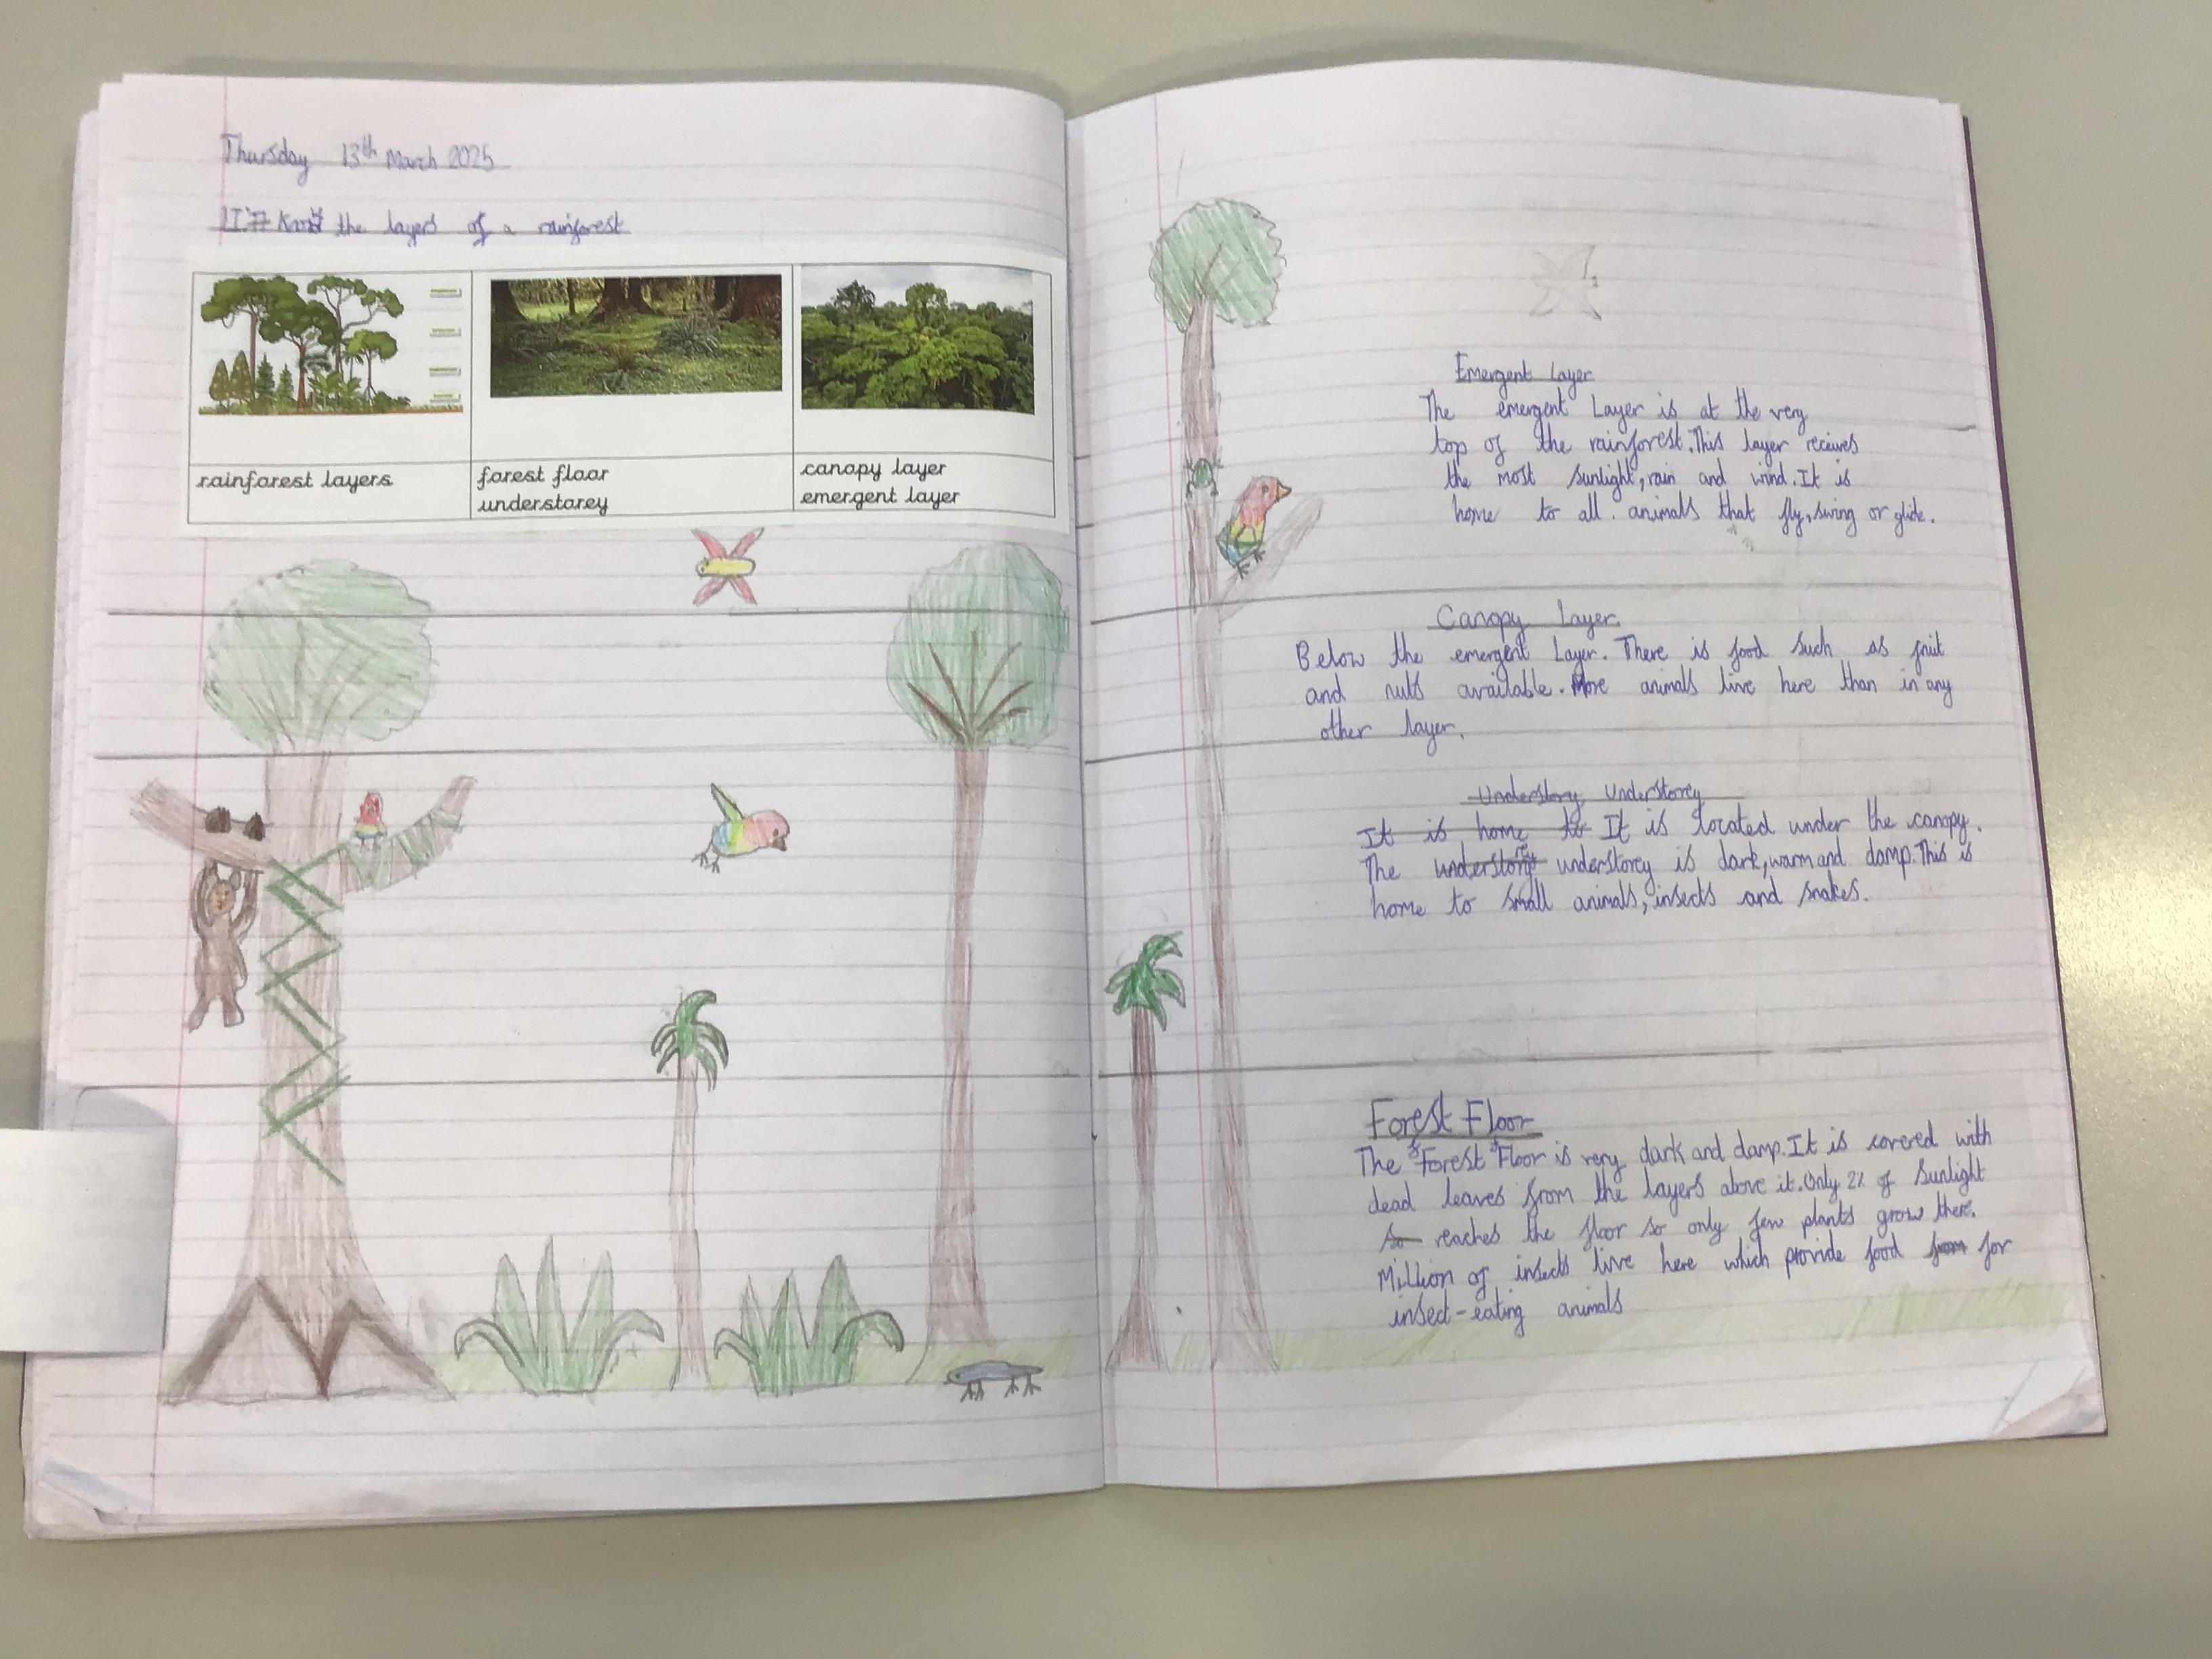 Thursday 13th March 2025
the layers of a rainforest
rainforest layers
forest floor
understorey
canopy layer
emergent layer
Emergent Layer
The emergent Layer is at the very
top of the rainforest. This layer recives
the most sunlight, rain and wind. It is
home to all. animals that fly, swing or glide.
Canopy Layer.
Below the emergent Layer. There is food such as fruit
and nuts available. More animals live here than in any
other layer.
Understory Understorey
It is home to It is located under the canopy.
The understory understorey is dark, warm and damp. This is
home to small animals, insects and snakes.
Forest Floor
The Forest Floor is very dark and damp. It is covered with
dead leaves from the layers above it. Only 2% of Sunlight
so reaches the floor so only few plants grow there.
Million of insects live here which provide food from for
insect-eating animals